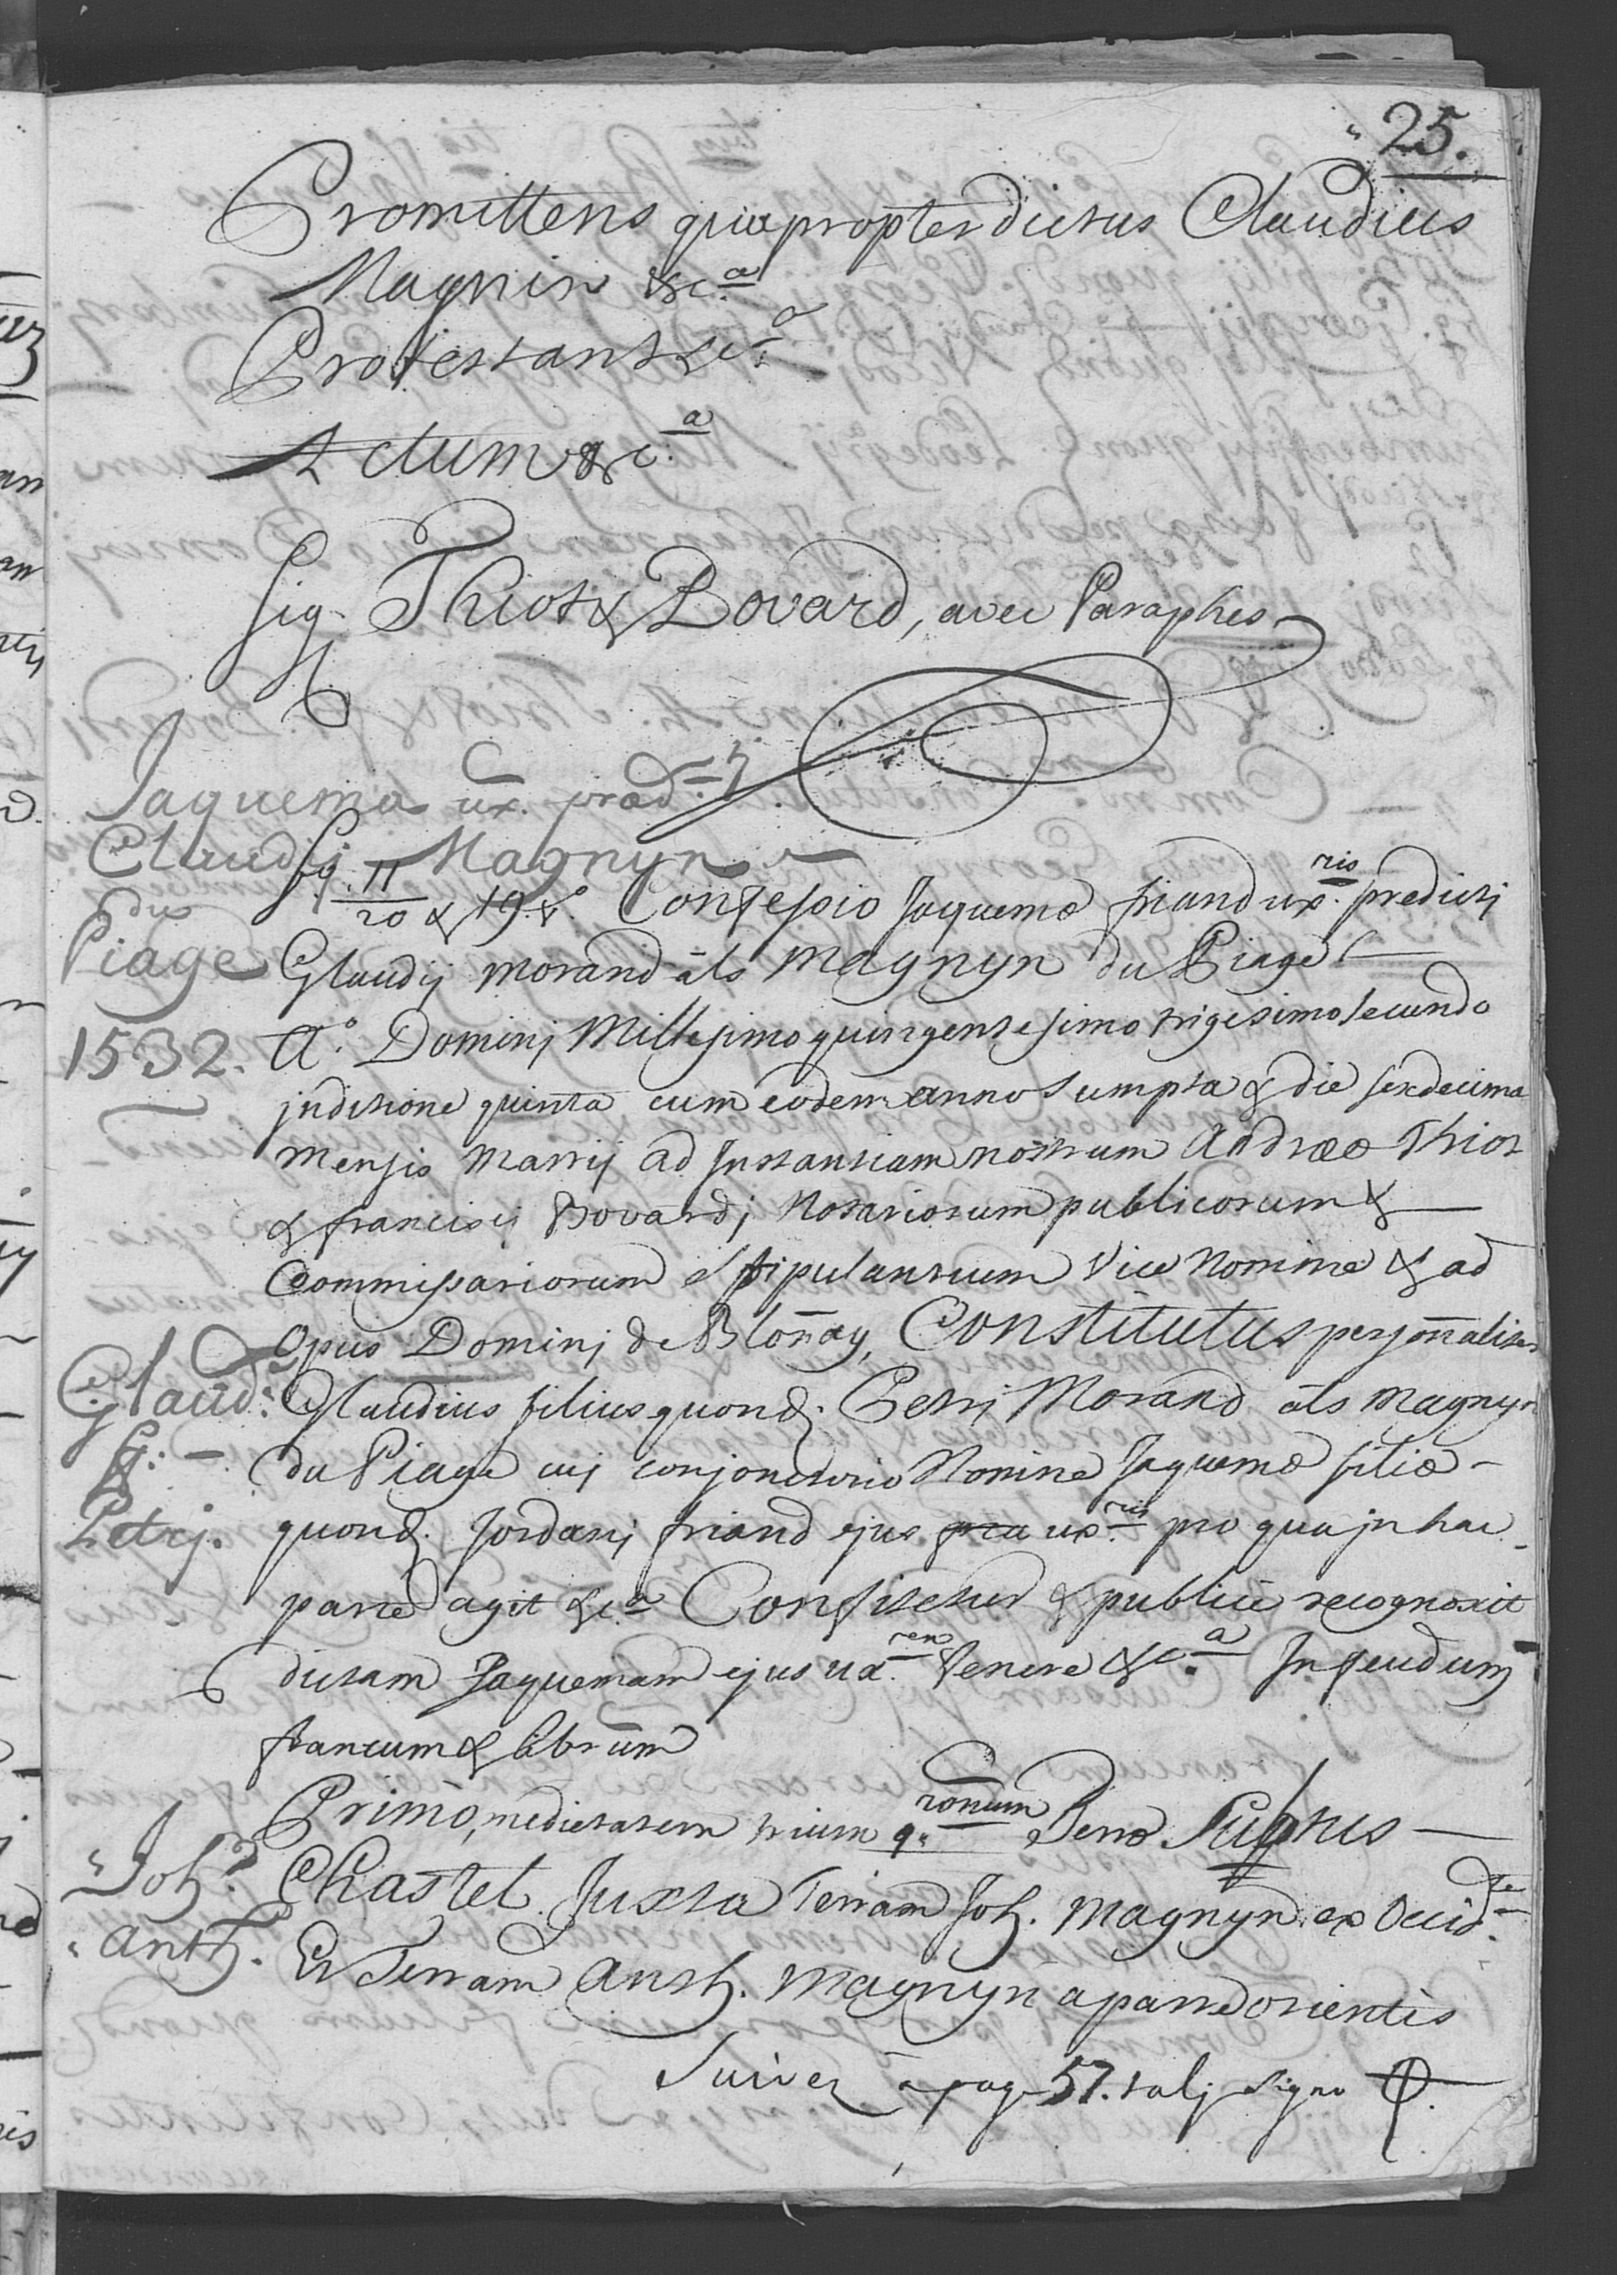 25.
Promittens quapropter dictus Claudius
Magnin &c.a
Protestans &c.a
Actum &c.a
Sig. Thiot & Bovard, avec Paraphes
Jaquema ux. præd.
Claudij Magnyn
du
Piage
1532.
fg. 11/20 & 19. Confessio Jaquemæ friand ux.ris predicti
Glaudij Morand als Magnyn du Piage
A.o Dominj Millesimo quingentesimo trigesimo secundo
jnditione quinta cum eodem anno sumpta & die sexdecima
mensis Martij ad Instantiam nostrum Andræe Thiot
& francisci Bovardj Notariorum publicorum &
Commissariorum Stipulantium Vice Nomine & ad
Opus Dominj de Blonay, Constitutus personnaliter
Glaud:
fg:
Petrj.
Glaudius filius quond. Petrj Morand als Magnyn
du Piage cuj conjonctorio Nomine Jaquemæ filiæ
quond. Jordanj friand ejus ux.ris pro qua jn hac
parte agit &c.a Confitetur & publicè recognoscit
dictam Jaquemam ejus ux.rem tenere &c.a In feudum
francum & librum
Primò, medietatem trium q.ronum Terræ
Joh.
Anth.
Chastel Juxta Terram Joh. Magnyn ex Occid.te
Et Terram Anth. Magnyn a parte orientis
Suivez à pag 57. talj Signo